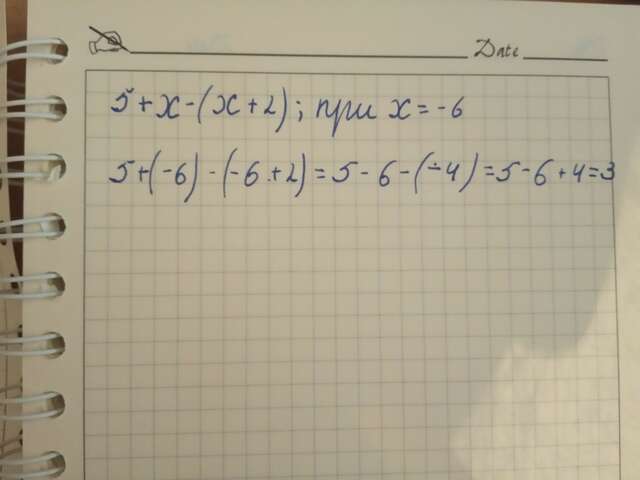 Date
5+x-(x+2); при x=-6
5+(-6)-(-6+2)=5-6-(-4)=5-6+4=3